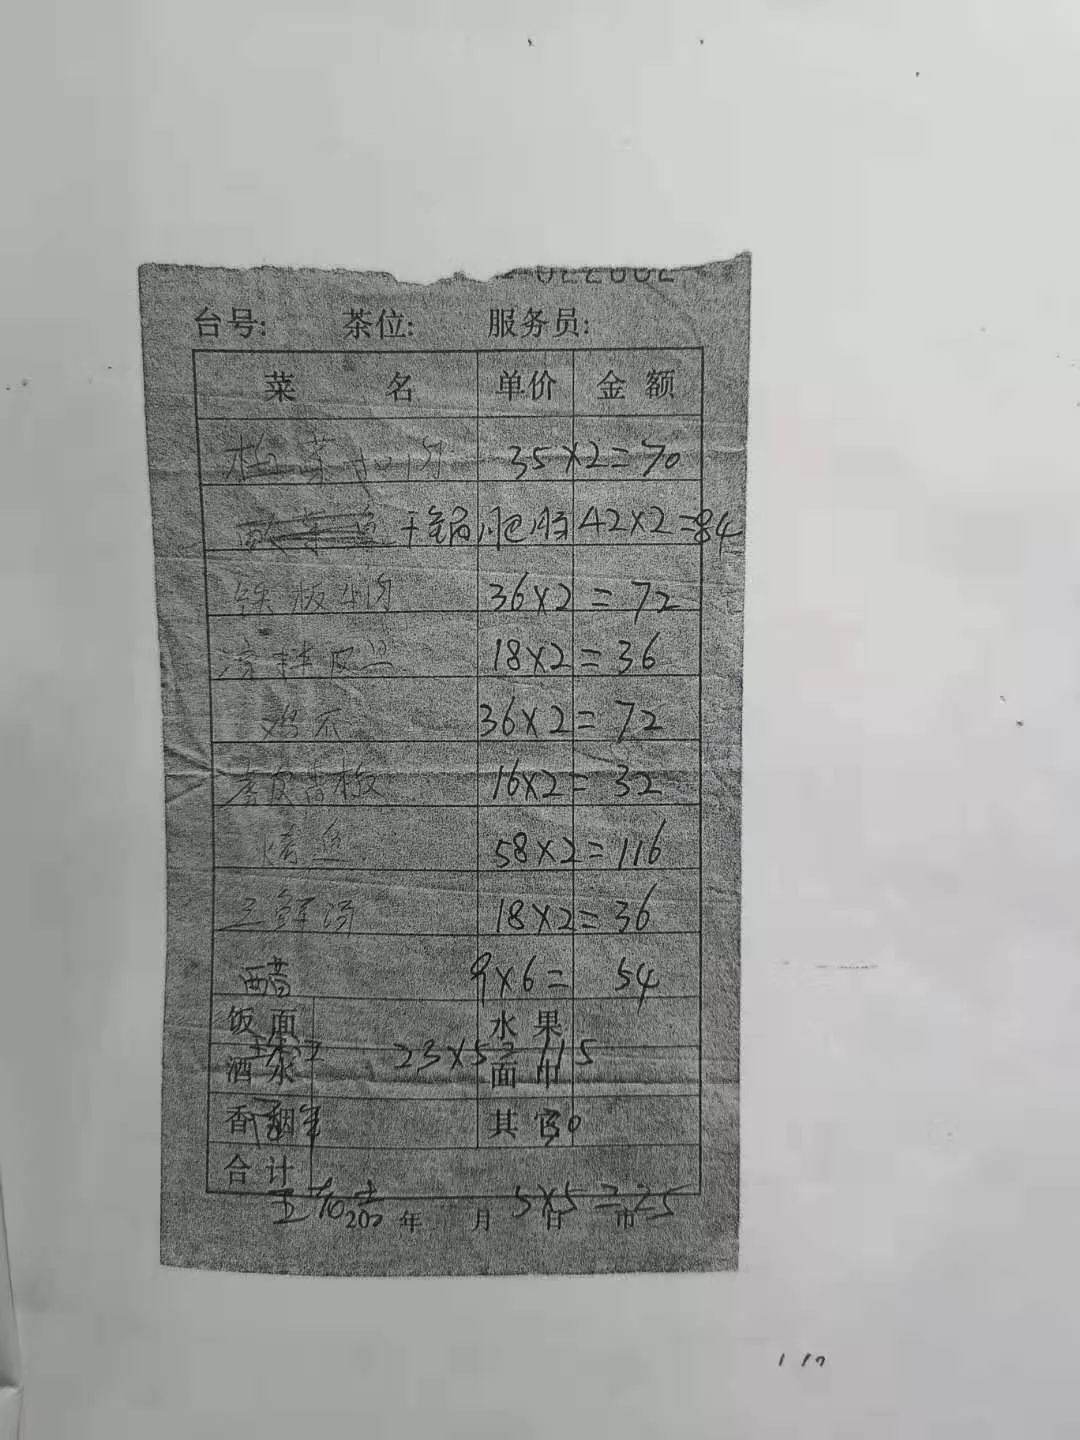 022602
台号: 茶位: 服务员:
菜 名 单价 金额
梅菜扣肉 35×2=70
酸菜鱼 干锅肥肠 42×2=84
铁板牛肉 36×2=72
凉拌皮 18×2=36
鸡爪 36×2=72
虎皮青椒 16×2=32
烤鱼 58×2=116
三鲜汤 18×2=36
醋 9×6= 54
饭面 水果
23×5= 115
酒水 面巾
香烟 其它 30
合计
5×5=25
202 年 月 日 市